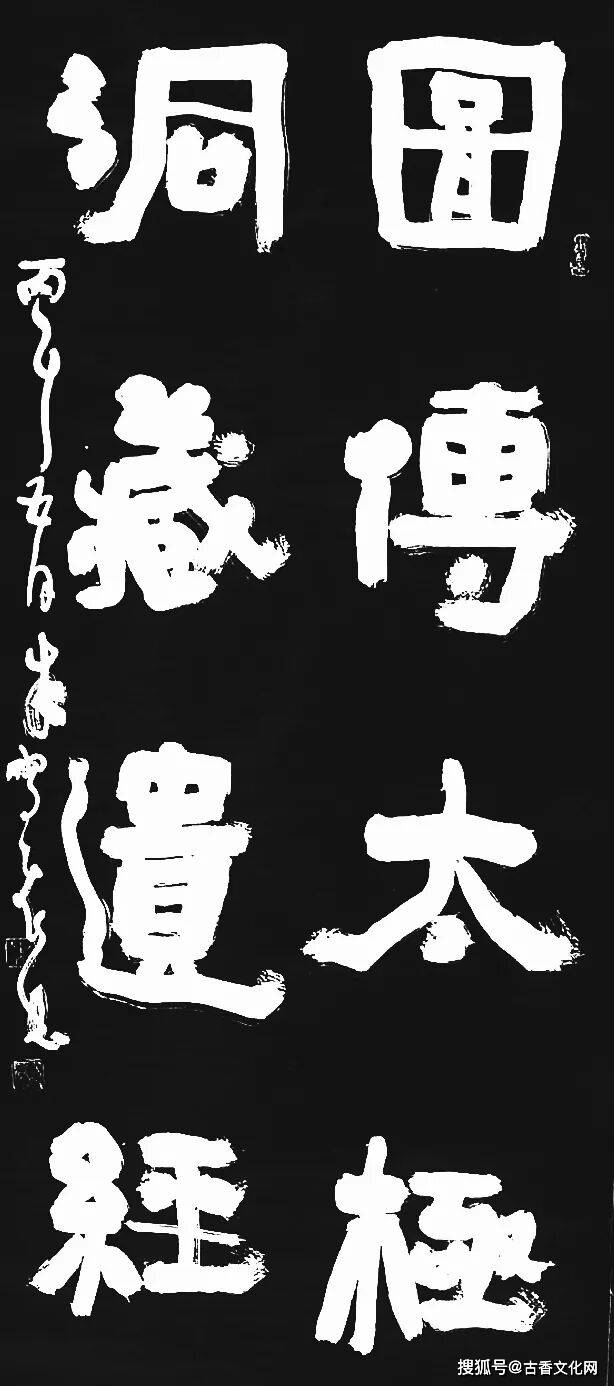 圖傳太極
洞藏遺經
丙午五月
搜狐号@古香文化网